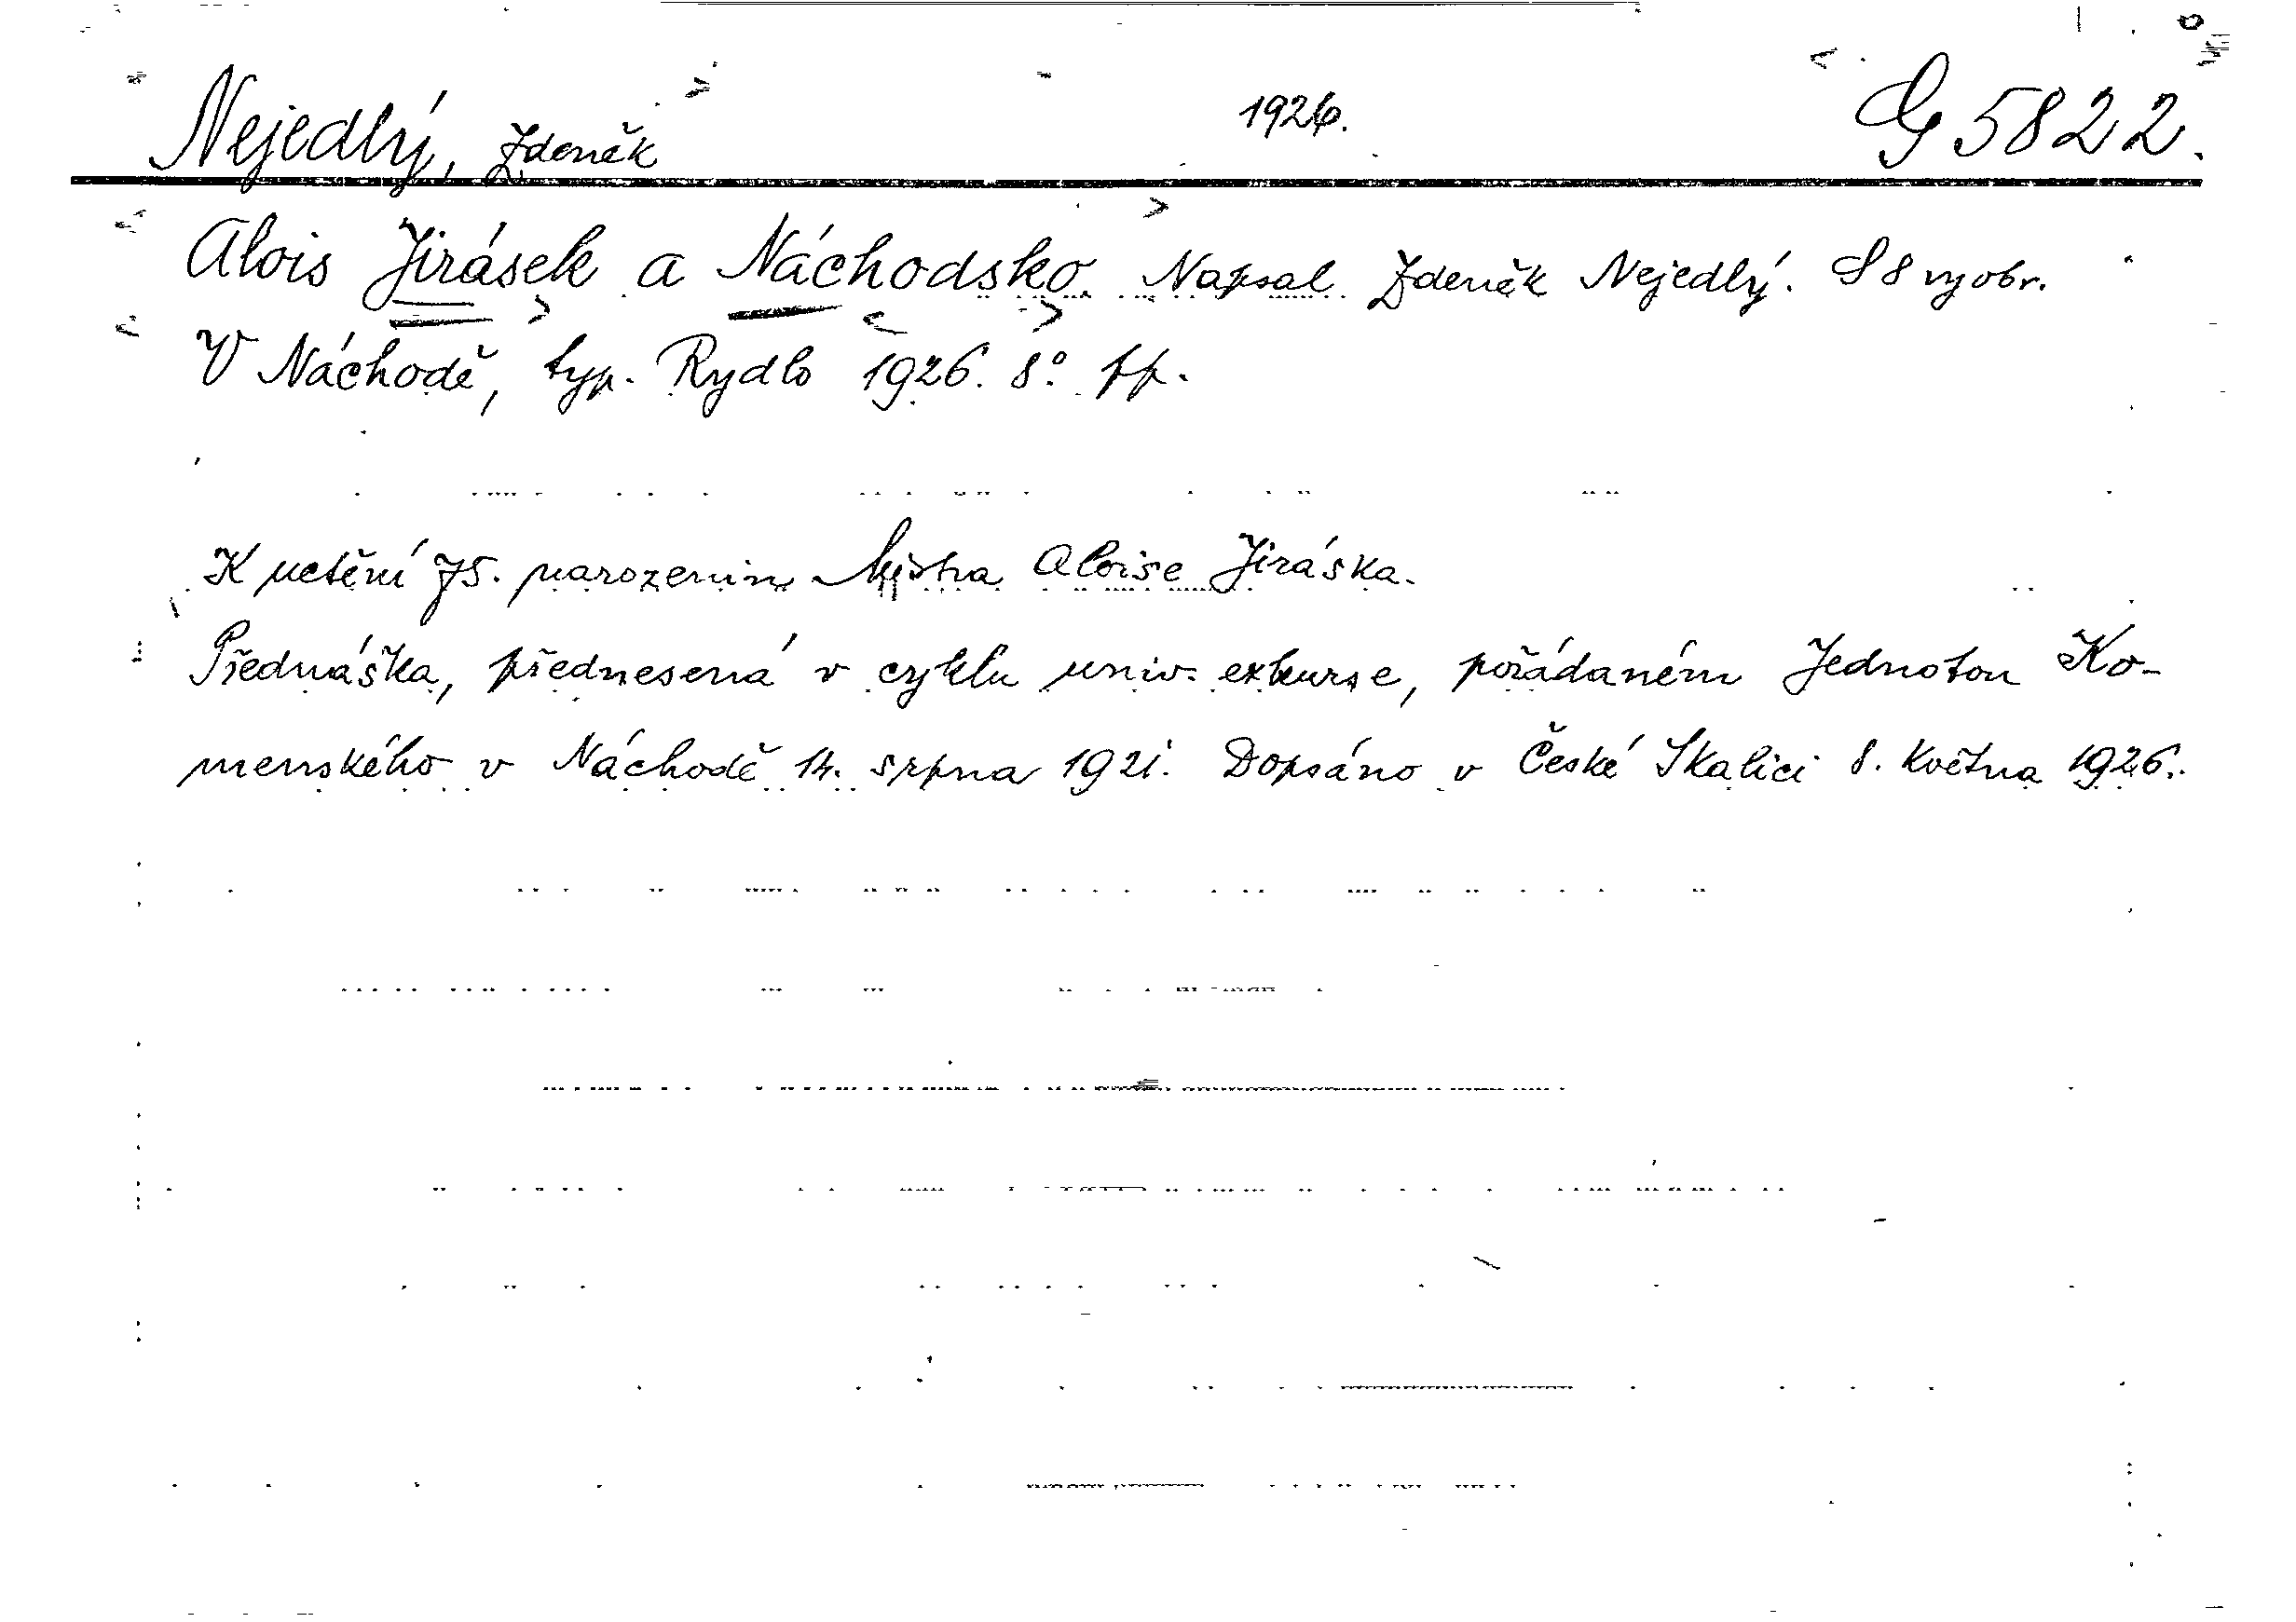 Nejedlý, Zdeněk 1926. G 5822.
Alois Jirásek a Náchodsko. Napsal Zdeněk Nejedlý. S 8 vyobr.
V Náchodě, typ. Rydlo 1926. 8° pp.
K uctění 75. narozenin Mistra Aloise Jiráska.
Přednáška, přednesená v cyklu univ. exkurse, pořádaném Jednotou Ko-
menského v Náchodě 14. srpna 1921. Dopsáno v České Skalici 8. května 1926.